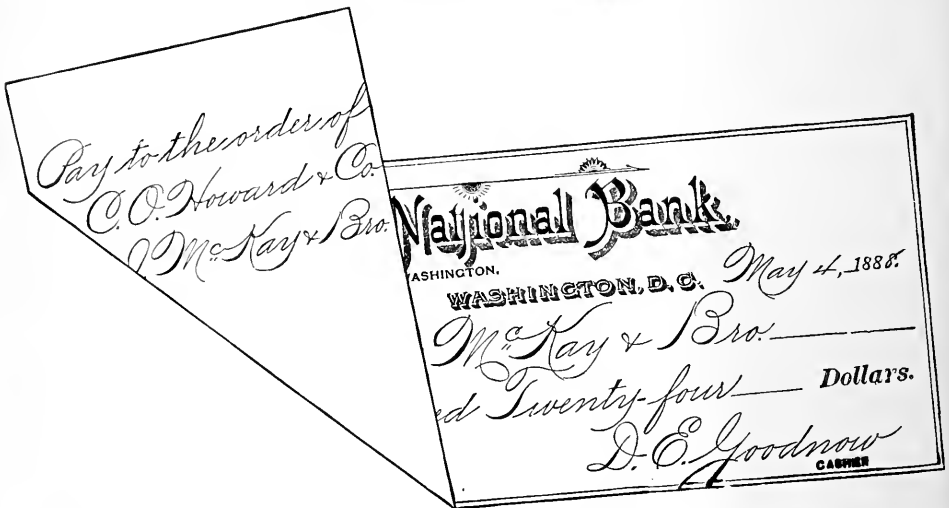 Pay to the order of
C. O. Howard & Co.
J. McKay & Bro.
National Bank.
WASHINGTON,
WASHINGTON, D. C. May 4, 1888.
McKay & Bro.
ed Twenty-four Dollars.
D. E. Goodnow
CASHIER